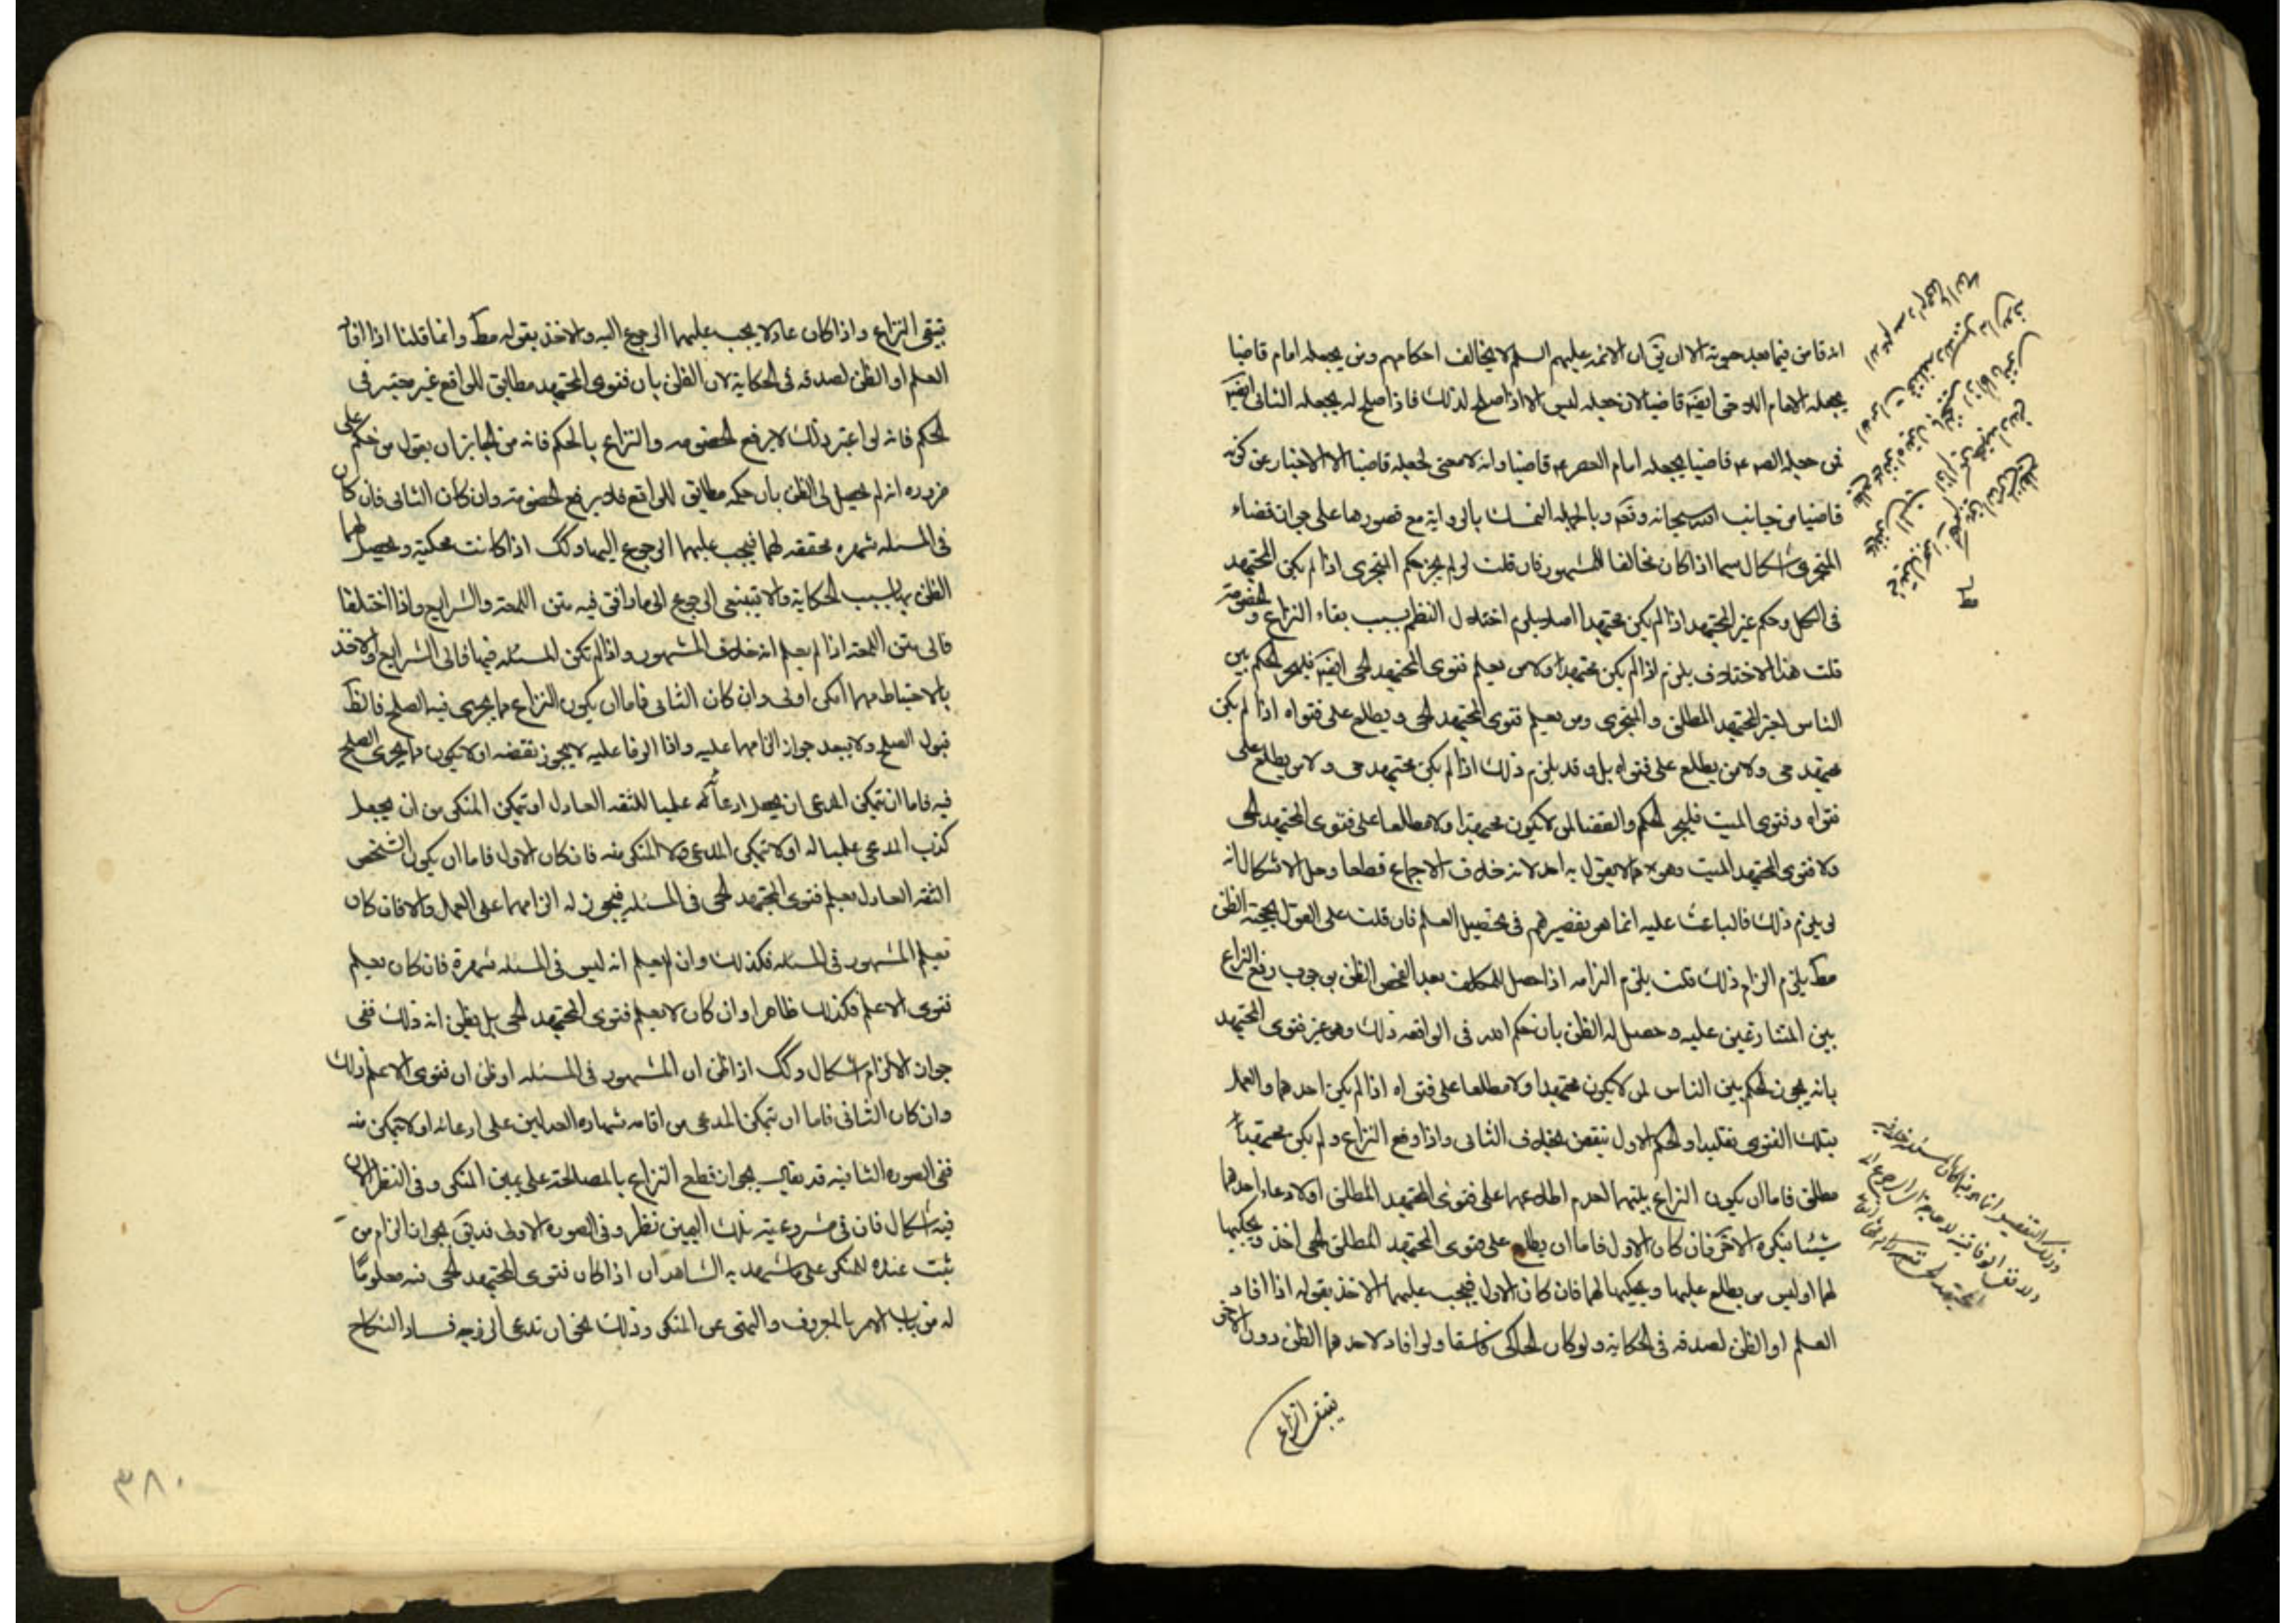 انه قاض فيما بعد حيوته الا ان يق ان الائمه عليهم السلم لا يخالف احكامهم ومن يجعله امام قاضيا
يجعله الامام اللاحق ايضا قاضيا لان جعله ليس الا اذا صلح لذلك فاذا صلح له يجعله الثانى ايضا
فمن جعله الصم قاضيا يجعله امام العصر عم قاضيا وانه لا معنى لجعله قاضيا الا الاخبار عن كونه
قاضيا من جانب الله سبحانه وتعم وبالجمله التمسك بالرواية مع قصورها على جواز قضاء
المتجزى اشكال سيما اذا كان مخالفا للمشهور فان قلت لو لم يجز حكم المتجزى اذا لم يكن المجتهد
فى الكل وحكم غير المجتهد اذا لم يكن مجتهدا اصلا يلزم اختلال النظم بسبب بقاء النزاع والخصومة
قلت هذا الاختلاف يلزم اذا لم يكن مجتهدا ولا من يعلم فتوى المجتهد الحى ايضا فليجز الحكم بين
الناس لغير المجتهد المطلق والمتجزى ومن يعلم فتوى المجتهد الحى ويطلع على فتواه اذا لم يكن
مجتهد حى ولا من يطلع على فتواه بل وقد يلزم ذلك اذا لم يكن مجتهد حى ولا من يطلع على
فتواه وفتوى الميت فليجز الحكم والقضا لمن لا يكون مجتهدا ولا مطلعا على فتوى المجتهد الحى
ولا فتوى المجتهد الميت وهو مما لا يقول به احد لانه خلاف الاجماع قطعا وحل الاشكال انه
لو يلزم ذلك فالباعث عليه انما هو تقصيرهم فى تحصيل العلم فان قلت على القول بحجية الظن
مط يلزم الزام ذلك قلت يلزم التزامه اذا حصل للمكلف بعد الفحص الظن بوجوب رفع النزاع
بين المتنازعين عليه وحصل له الظن بان حكم الله فى الواقعه ذلك وهو غير فتوى المجتهد
بانه يجوز الحكم بين الناس لمن لا يكون مجتهدا ولا مطلعا على فتواه اذا لم يكن احدهما والعمل
بتلك الفتوى تقليدا والحكم الاول ينقض بخلاف الثانى واذا وقع النزاع ولم يكن مجتهدا
مطلق فاما ان يكون النزاع بينهما لعدم اطلاعهما على فتوى المجتهد المطلق او لادعاء احدهما
شيئا ينكره الاخر فان كان الاول فاما ان يطلع على فتوى المجتهد المطلق الحى احد ويحكيها
لهما او ليس من يطلع عليها ويحكيها لهما فان كان الاول فيجب عليهما الاخذ بقوله اذا افاد
العلم او الظن لصدقه فى الحكاية ولو كان الحاكى فاسقا ولو افاد لاحدهما الظن دون الاخر
تبقى النزاع
وذلك التقصير انما هو فيما كان المسئله خلافيه
تبقى النزاع واذا كان عادلا يجب عليهما الرجوع اليه والاخذ بقوله مط وانما قلنا اذا افاد
العلم او الظن لصدقه فى الحكاية لان الظن بان فتوى المجتهد مطابق للواقع غير معتبر فى
الحكم فانه لو اعتبر ذلك لا يرفع الخصومه والنزاع بالحكم فانه من الجايز ان يقول من حكم على
ضرره انه لم يحصل لى الظن بان حكمه مطابق للواقع فلا يرفع الخصومته وان كان الثانى فان كان
فى المسئله شهره محققه لهما فيجب عليهما الرجوع اليها وكك اذا كانت محكية ويحصل لهما
الظن بها بسبب الحكاية والا فينبغى الرجوع الى ما وافق فيه متن اللمعه والشرايع واذا اختلفا
فالى متن اللمعه اذا لم يعلم انه خلاف المشهور واذا لم تكن المسئله فيها فالى الشرايع والاخذ
بالاحتياط مهما امكن اولى وان كان الثانى فاما ان يكون النزاع مما يجرى فيه الصلح فالظ
قبول الصلح ولا يبعد جواز الزامهما عليه واذا اوقعا عليه لا يجوز نقضه او لا يكون مما يجرى الصلح
فيه فاما ان تمكن المدعى ان يجعل ادعائه علميا للثقه العادل او تمكن المنكر من ان يجعل
كذب المدعى علميا له او لا تمكن المدعى ولا المنكر منه فان كان الاول فاما ان يكون الشخص
الثقه العادل يعلم فتوى المجتهد الحى فى المسئله فيجوز له الزامهما على العمل والا فان كان
يعلم المشهور فى المسئله فكذلك وان لم يعلم انه ليس فى المسئله شهرة فان كان يعلم
فتوى الاعلم فكذلك ظاهرا وان كان لا يعلم فتوى المجتهد الحى بل يظن انه ذلك ففى
جواز الالزام اشكال وكك اذا ظن ان المشهور فى المسئله او ظن ان فتوى الاعلم ذلك
وان كان الثانى فاما ان تمكن المدعى من اقامه شهاده العدلين على ادعائه او لا تمكن منه
ففى الصوره الثانيه قد يقال بجواز قطع النزاع بالمصالحة على يمين المنكر وفى النظر الان
فيه اشكال فان فى مشروعية تلك اليمين نظر وفى الصوره الاولى قد يق بجواز الزام من
ثبت عنده المنكر على ما شهد به الشاهدان اذا كان فتوى المجتهد الحى منه معلوما
له من باب الامر بالمعروف والنهى عن المنكر وذلك نحو ان تدعى الزوجه فساد النكاح
٣٨٠